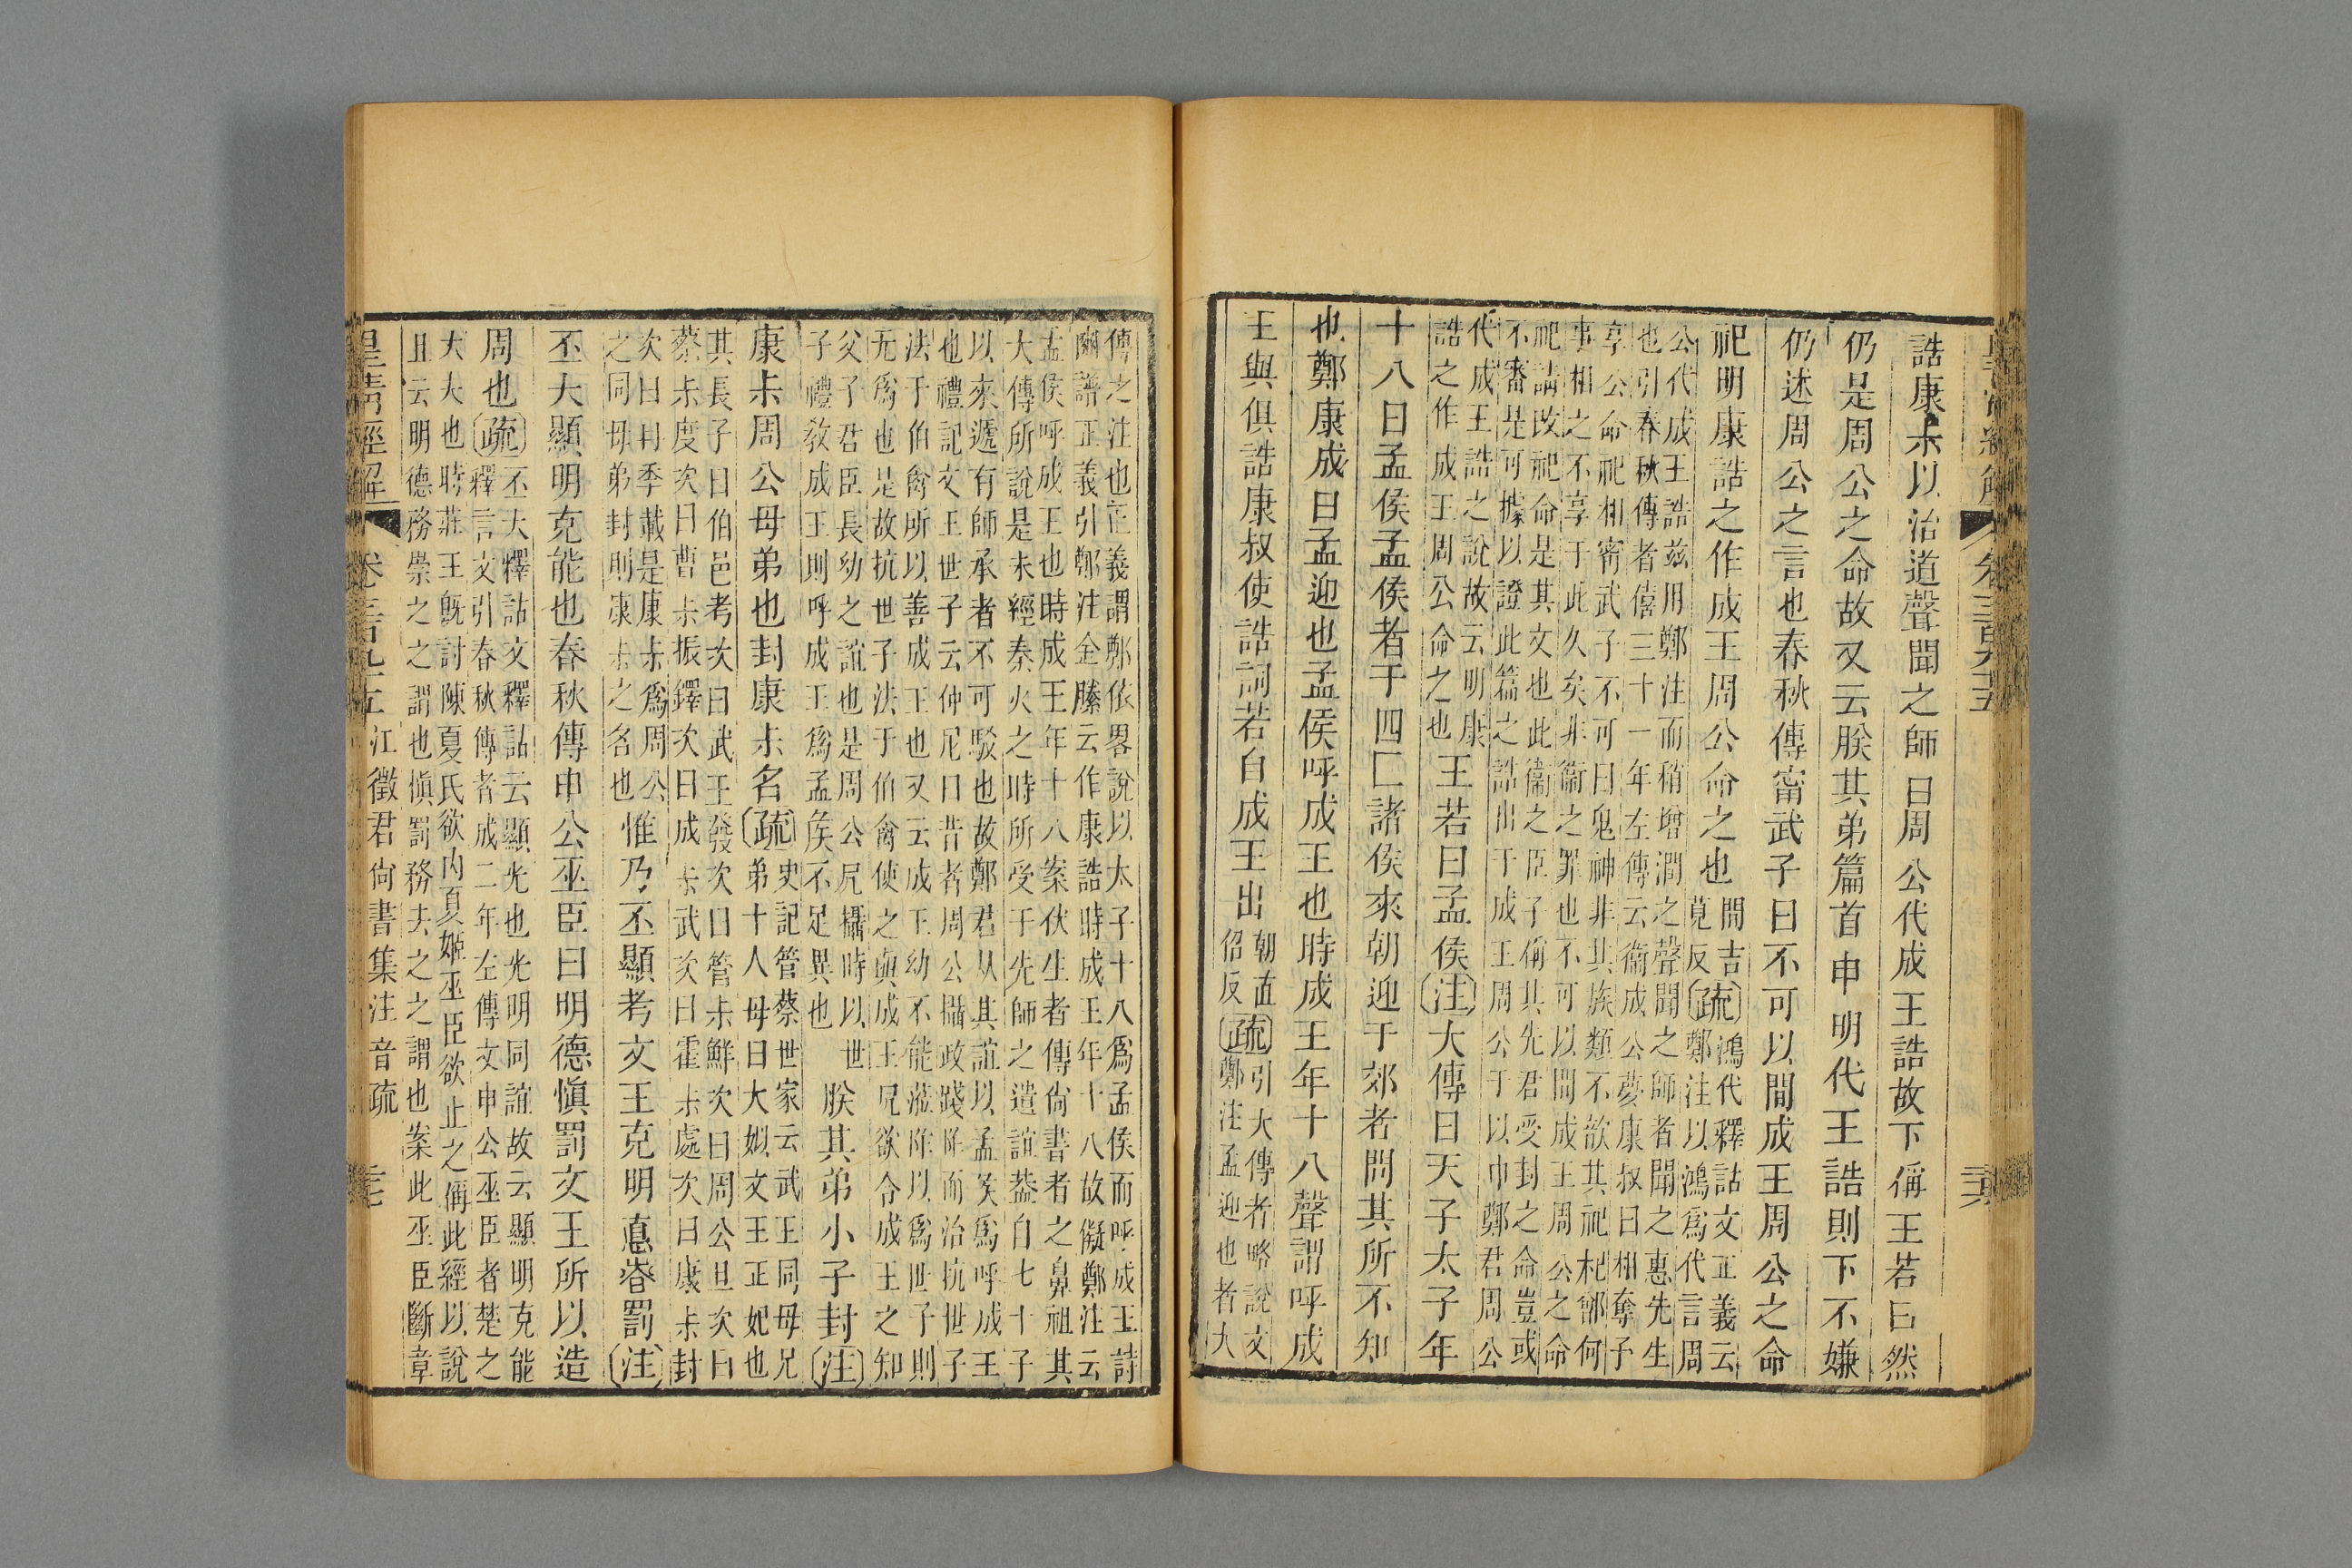 皇清經解 卷三百九十五 美
誥康尗以治道聲聞之師曰周公代成王誥故下稱王若曰然
仍是周公之命故又云朕其弟篇首申明代王誥則下不嫌
仍述周公之言也春秋傳甯武子曰不可以閒成王周公之命
祀明康誥之作成王周公命之也
閒吉
莧反
疏
鴻代釋詁文正義云
鄭注以鴻爲代言周
公代成王誥兹用鄭注而稍增澗之聲聞之師者聞之惠先生
也引春秋傳者僖三十一年左傳云衞成公夢康叔曰相奪予
享公命祀相甯武子不可曰鬼神非其族類不歆其祀杞鄫何
事相之不享于此久矣非衞之罪也不可以閒成王周公之命
祀請改祀命是其文也此衞之臣子偁其先君受封之命豈或
不審是可據以證此篇之誥出于成王周公于以巾鄭君周公
代成王誥之說故云明康
誥之作成王周公命之也
王若曰孟侯注大傳曰天子太子年
十八曰孟侯孟侯者于四匚諸侯來朝迎于郊者問其所不知
也鄭康成曰孟迎也孟侯呼成王也時成王年十八聲謂呼成
王與俱誥康叔使誥詞若自成王出
朝直
佋反
疏
引大傳者略說文
鄭注孟迎也者大
傳之注也正義謂鄭依畧說以太子十八爲孟侯而呼成王詩
豳譜正義引鄭注金縢云作康誥時成王年十八故儗鄭注云
孟侯呼成王也時成王年十八案伏生者傳尙書者之鼻祖其
大傳所說是未經秦火之時所受于先師之遺誼葢自七十子
以來遞有師承者不可駁也故鄭君从其誼以孟矦爲呼成王
也禮記文王世子云仲尼曰昔者周公攝政踐阼而治抗世子
法于伯禽所以善成王也又云成王幼不能涖阼以爲世子則
无爲也是故抗世子法于伯禽使之與成王凥欲令成王之知
父子君臣長幼之誼也是周公凥攝時以世
子禮敎成王則呼成王爲孟矦不足異也
朕其弟小子封注
康尗周公母弟也封康尗名疏
史記管蔡世家云武王同母兄
弟十人母曰大姒文王正妃也
其長子曰伯邑考次曰武王發次曰管尗鮮次曰周公旦次曰
蔡尗度次曰曹尗振鐸次曰成尗武次曰霍尗處次曰康尗封
次曰冄季載是康尗爲周公
之同母弟封則康尗之名也
惟乃丕顯考文王克明悳眘罰注
丕大顯明克能也春秋傳申公巫臣曰明德愼罰文王所以造
周也疏
丕大釋詁文釋詁云顯光也光明同誼故云顯明克能
釋言文引春秋傳者成二年左傳文申公巫臣者楚之
大大也時莊王旣討陳夏氏欲内夏姬巫臣欲止之偁此經以說
且云明德務崇之之謂也愼罰務去之之謂也案此巫臣斷章
皇清經解 卷三百九十五 江徵君尙書集注音疏 毛